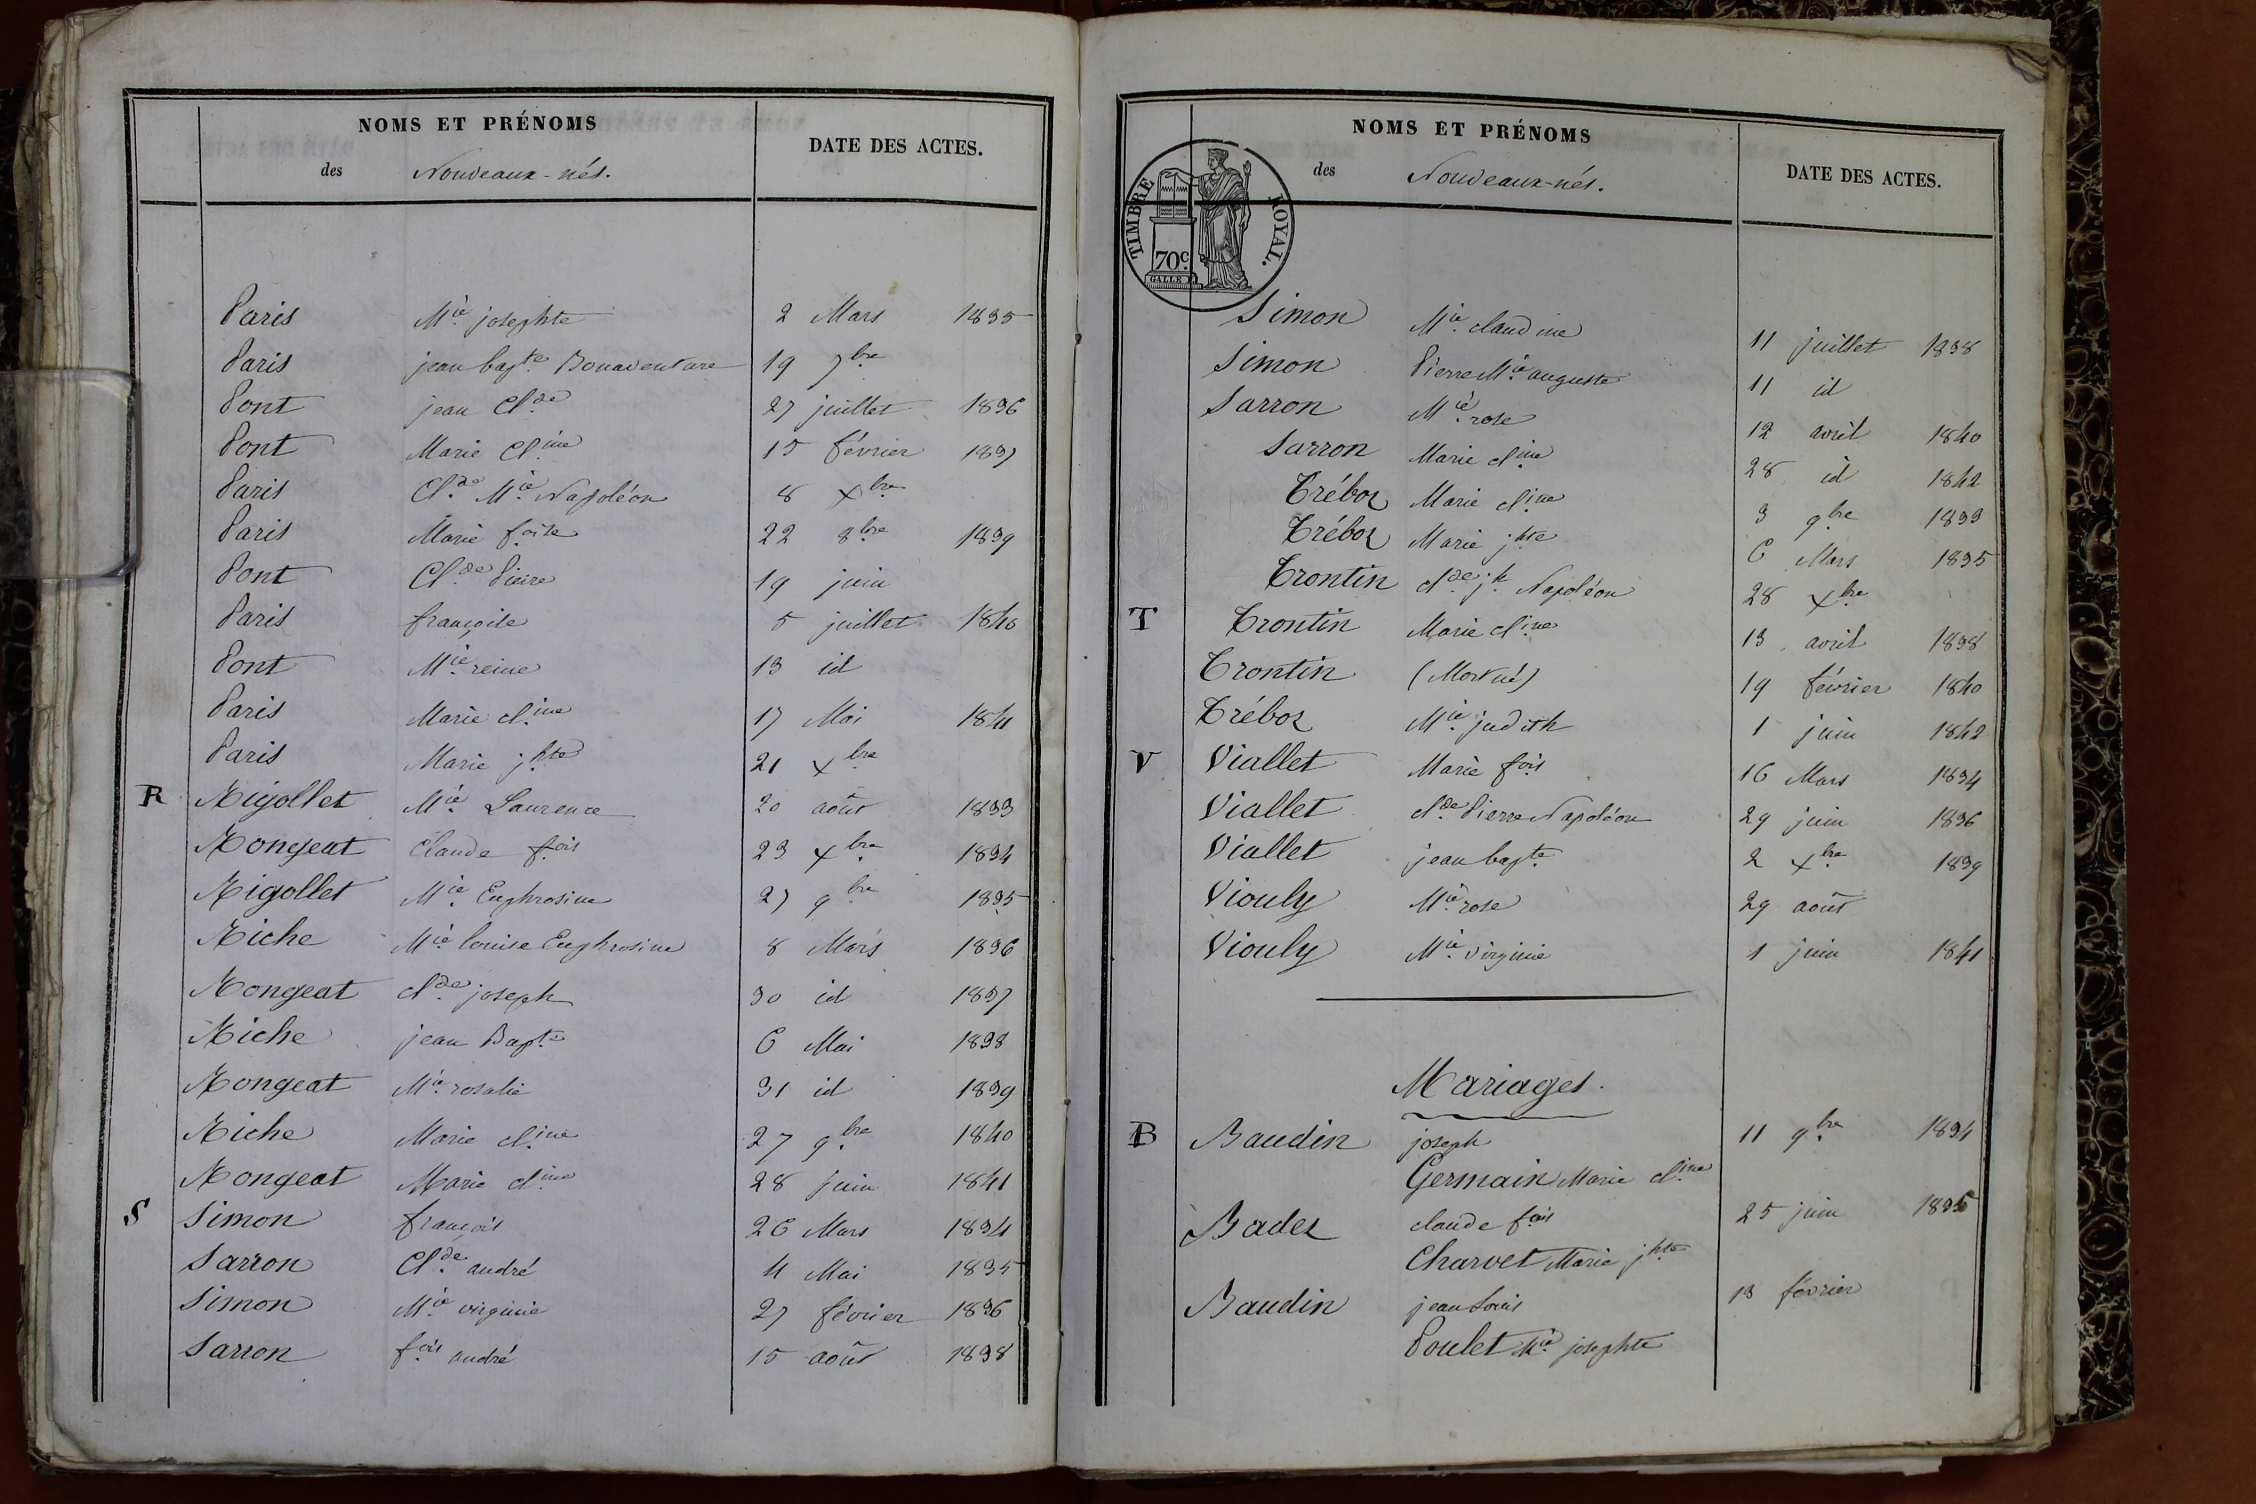 NOMS ET PRÉNOMS
des Nouveaux-nés.
DATE DES ACTES.
Paris Mie josephte 2 Mars 1835
Paris jean bapte Bonaventure 19 7bre
Pont jean Clde 27 juillet 1836
Pont Marie Cline 15 février 1837
Paris Clde Mie Napoléon 8 xbre
Paris Marie foise 22 8bre 1839
Pont Clde Pierre 19 juin
Paris françoise 5 juillet 1840
Pont Mie reine 13 id
Paris Marie cline 17 Mai 1841
Paris Marie jhte 21 xbre
R Rigollet Mie Laurence 20 août 1833
Rongeat Claude fois 23 xbre 1834
Rigollet Mie Euphrosine 27 9bre 1835
Riche Mie louise Euphrosine 8 Mars 1836
Rongeat clde joseph 30 id 1837
Riche jean Bapte 6 Mai 1838
Rongeat Mie rosalie 31 id 1839
Riche Marie cline 27 9bre 1840
Rongeat Marie cline 28 juin 1841
S Simon françois 26 Mars 1834
Sarron Clde andré 4 Mai 1835
Simon Mie virginie 27 février 1836
Sarron fois andré 15 août 1838
NOMS ET PRÉNOMS
des Nouveaux-nés.
DATE DES ACTES.
TIMBRE ROYAL.
70c
GALLE
Simon Mie claudine 11 juillet 1838
Simon Pierre Mie auguste 11 id
Sarron Mie rose 12 avril 1840
Sarron Marie cline 28 id 1842
Tréboz Marie cline 3 9bre 1833
Tréboz Marie jhte 6 Mars 1835
Trontin clde jh Napoléon 28 xbre
T Trontin Marie cline 13 avril 1838
Trontin (Mort né) 19 février 1840
Tréboz Mie judith 1 juin 1842
V Viallet Marie fois 16 Mars 1834
Viallet clde Pierre Napoléon 29 juin 1836
Viallet jean bapte 2 xbre 1839
Viouly Mie rose 29 août
Viouly Mie virginie 1 juin 1841
Mariages.
B Baudin joseph 11 9bre 1834
Germain Marie cline
Badez claude fois 25 juin 1835
Charvet Marie jhte
Baudin jean Louis 13 février
Poulet Mie josephte